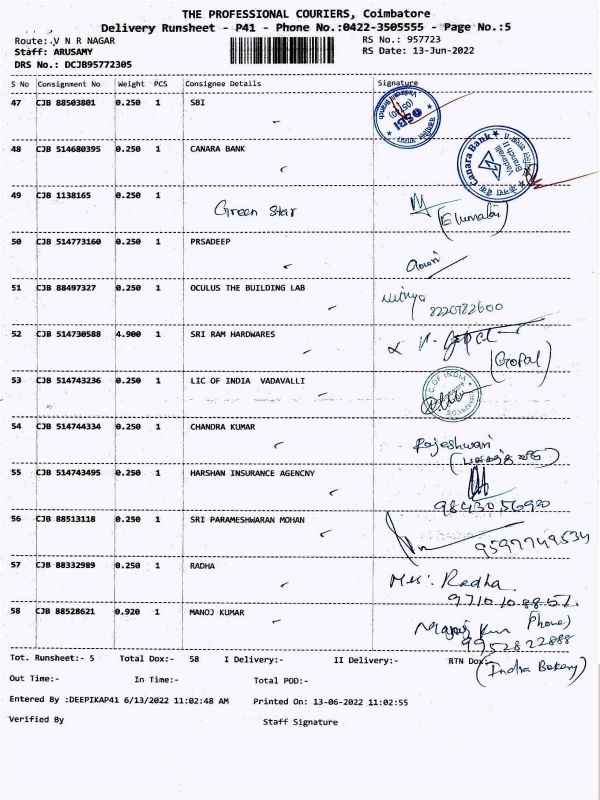 THE PROFESSIONAL COURIERS, Coimbatore
Delivery Runsheet - P41 - Phone No.:0422-3505555 - Page No.:5
Route: V N R NAGAR RS No.: 957723
Staff: ARUSAMY RS Date: 13-Jun-2022
DRS No.: DCJB95772305
S No Consignment No Weight PCS Consignee Details Signature
47 CJB 88503801 0.250 1 SBI
SBI
48 CJB 514680395 0.250 1 CANARA BANK
Canara Bank
Vadavalli
Branch II
49 CJB 1138165 0.250 1
Green Star
(Elumalai)
50 CJB 514773160 0.250 1 PRSADEEP
Gowri
51 CJB 88497327 0.250 1 OCULUS THE BUILDING LAB
Nithya
8220782600
52 CJB 514730588 4.900 1 SRI RAM HARDWARES
(Gopal)
53 CJB 514743236 0.250 1 LIC OF INDIA VADAVALLI
54 CJB 514744334 0.250 1 CHANDRA KUMAR
Rajeshwari
55 CJB 514743495 0.250 1 HARSHAN INSURANCE AGENCNY
9843056920
56 CJB 88513118 0.250 1 SRI PARAMESHWARAN MOHAN
9597749534
57 CJB 88332989 0.250 1 RADHA
Mrs: Radha
58 CJB 88528621 0.920 1 MANOJ KUMAR
9952822888
Tot. Runsheet:- 5 Total Dox:- 58 I Delivery:- II Delivery:- RTN Dox:-
(Indra Bakery)
Out Time:- In Time:- Total POD:-
Entered By :DEEPIKAP41 6/13/2022 11:02:48 AM Printed On: 13-06-2022 11:02:55
Verified By Staff Signature